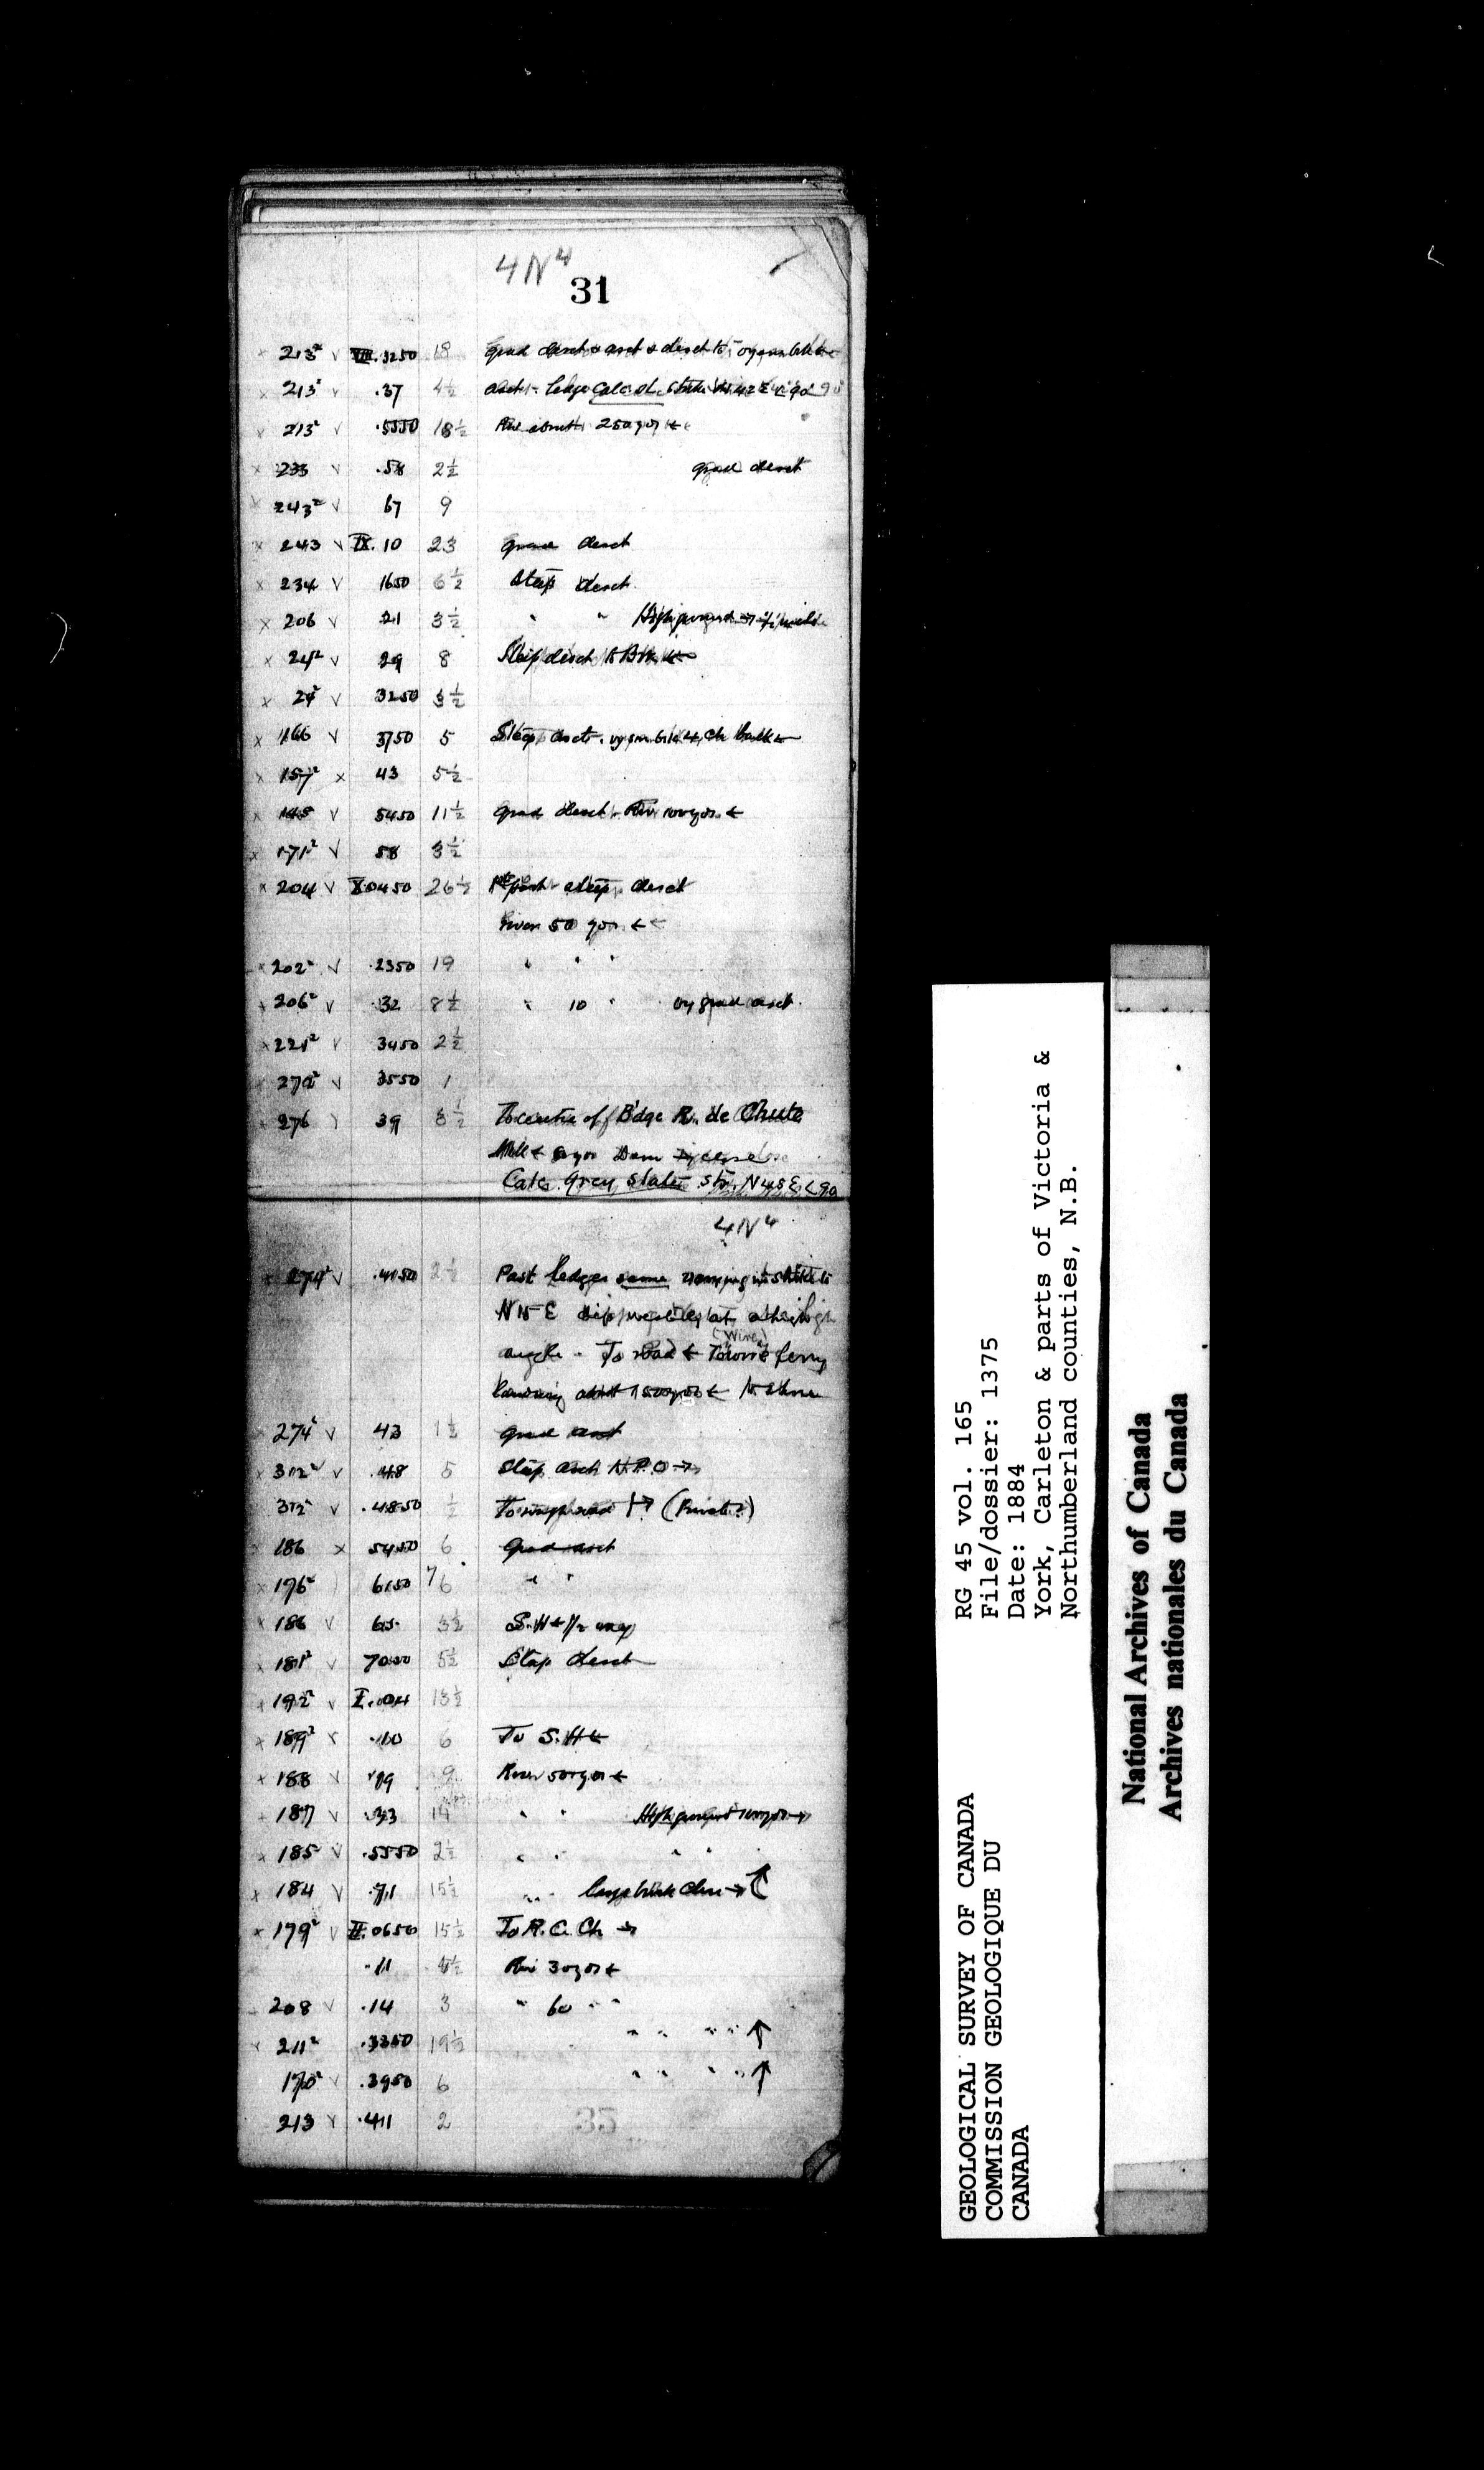 4N⁴
31
213² √ VIII.3250 18 grad desct & asct & desct to
213² √ .37 4½ asct - ledge Calc sl. strike N 42 E < 90
213² √ .5550 18½ Riv about 250 yds ←
233 √ .58 2½ grad desct
243² √ 67 9
243 √ IX.10 23 grad desct
234 √ 1650 6½ Steep desct
206 √ 21 3½ " " High ground →
24² √ 29 8 Steep desct to Brk ←
24² √ 3250 3½
166 √ 3750 5 Steep asct. back ←
157² x 43 5½
148 √ 5450 11½ grad desct. Riv 100 yds. ←
171² √ 58 3½
204 √ X.0450 26½ 1st part steep desct
River 50 yds ←
202² √ .2350 19 " " "
206² √ .32 8½ " 10 " vy grad asct.
221² √ 3450 2½
272² √ 3550 1
276 39 3½ To centre of Bdge R. de Chute
Mill ← Dam
Calc. Grey slates str. N 48 E < 90
4N⁴
279² √ .4150 2½ Past ledges same strike to
N 15 E at a high
angle - To road ← To (Wire) ferry
landing about 150 yds ←
274² √ 43 1½ grad asct
312² √ .48 5 Steep asct N.P.O →
312² √ .4850 ½ To road |→ (Private?)
186 x 5450 6 grad asct
196² 6150 7 6 " "
186 √ 65. 3½ S.H ← ½ way
181² √ 7050 5½ Steep desct
192² √ I.04 13½
189² √ .10 6 To S.H ←
188 √ .19 9 River 50 yds ←
187 √ .33 14 " " High ground 100 yds →
185 √ .5550 2½ " " " "
184 √ .71 15½ " " close → ↑
179² √ II.0650 15½ To R.C. Ch →
.11 4½ Riv 30 yds ←
208 √ .14 3 " 60 " "
211² .3350 19½ " " " " ↑
170² √ .3950 6 " " " " ↑
213 √ .411 2
35
RG 45 vol. 165
File/dossier: 1375
Date: 1884
York, Carleton & parts of Victoria &
Northumberland counties, N.B.
GEOLOGICAL SURVEY OF CANADA
COMMISSION GEOLOGIQUE DU
CANADA
National Archives of Canada
Archives nationales du Canada